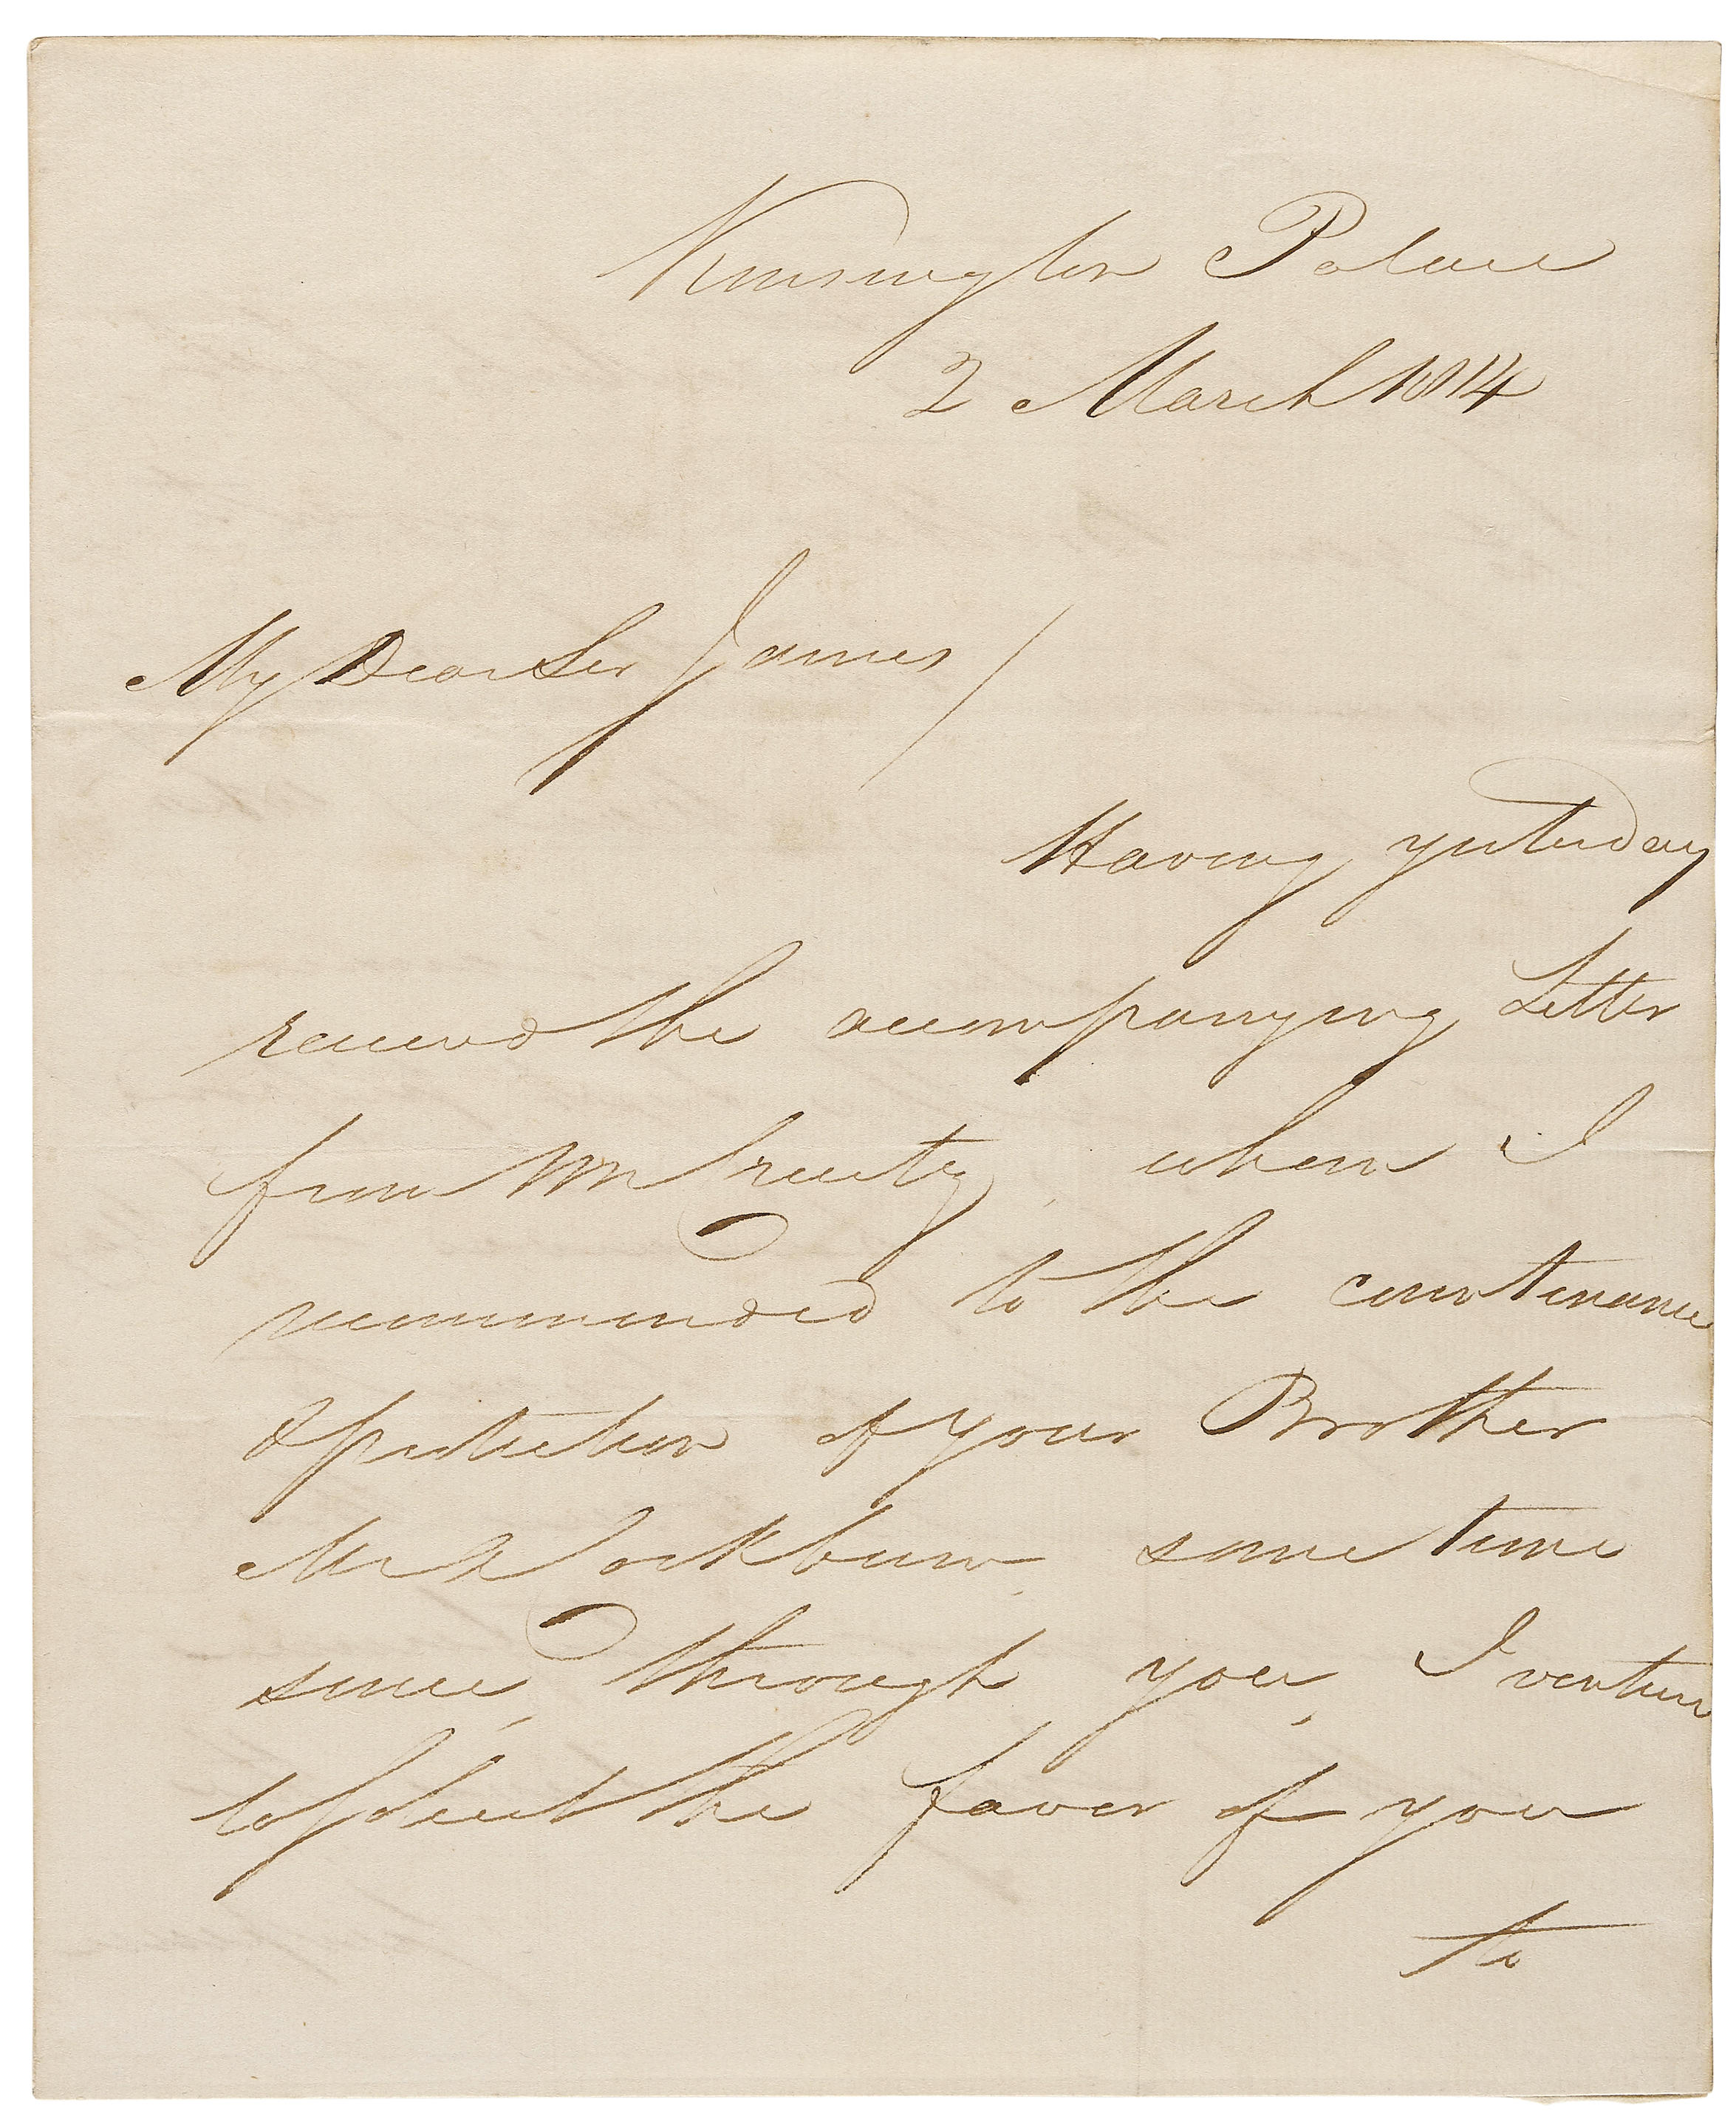 Kensington Palace
2 March 1814
My Dear Sir James/
Having yesterday
received the accompanying Letter
from Mr , whom I
recommended to the countenance
& protection of your Brother
Mr Cockburn, some time
since, through you, I venture
to solicit the favor of you
to